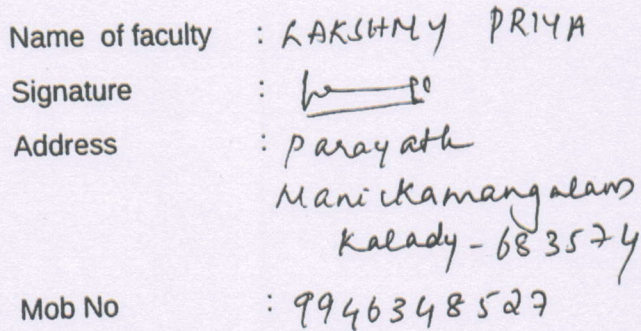 Name of faculty : LAKSHMY PRIYA
Signature :
Address : Parayath
Manickamangalam
Kalady - 683574
Mob No : 9946348527